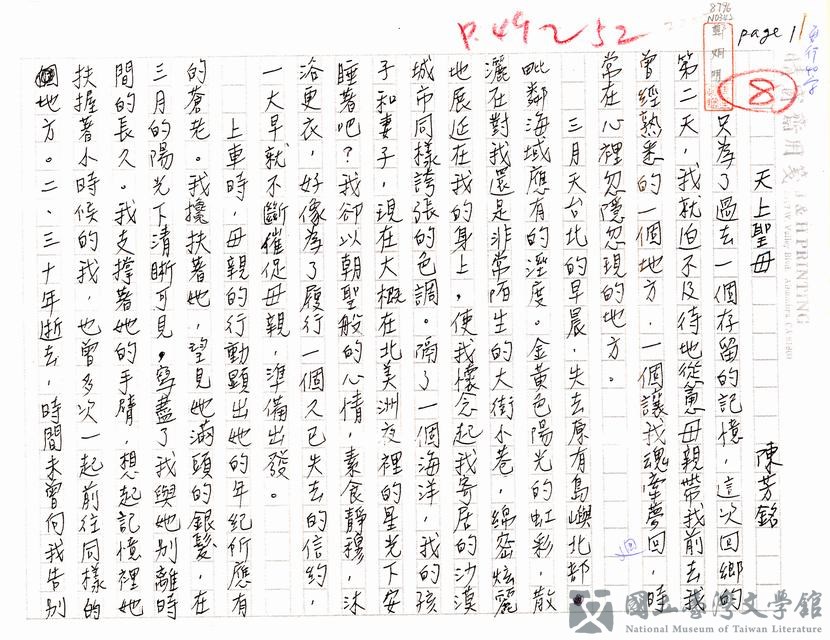 P.49~52
8796
page 1
8
天上聖母
陳芳銘
只為了過去一個存留的記憶，這次回鄉的
第二天，我就迫不及待地從慫母親帶我前去我
曾經熟悉的一個地方，一個讓我魂牽夢回，時
常在心裡忽隱忽現的地方。
三月天台北的早晨，失去原有島嶼北部
毗鄰海域應有的溼度。金黃色陽光的虹彩，散
灑在對我還是非常陌生的大街小巷，綿密炫麗
地展延在我的身上，使我懷念起我寄居的沙漠
城市同樣誇張的色調。隔了一個海洋，我的孩
子和妻子，現在大概在北美洲夜裡的星光下安
睡著吧？我卻以朝聖般的心情，素食靜穆，沐
浴更衣，好像為了履行一個久已失去的信約，
一大早就不斷催促母親，準備出發。
上車時，母親的行動顯出她的年紀所應有
的蒼老。我攙扶著她，望見她滿頭的銀髮，在
三月的陽光下清晰可見，寫盡了我與她別離時
間的長久。我支撐著她的手臂，想起記憶裡她
扶握著小時候的我，也曾多次一起前往同樣的
地方。二、三十年逝去，時間未曾向我告別
國立臺灣文學館
National Museum of Taiwan Literature